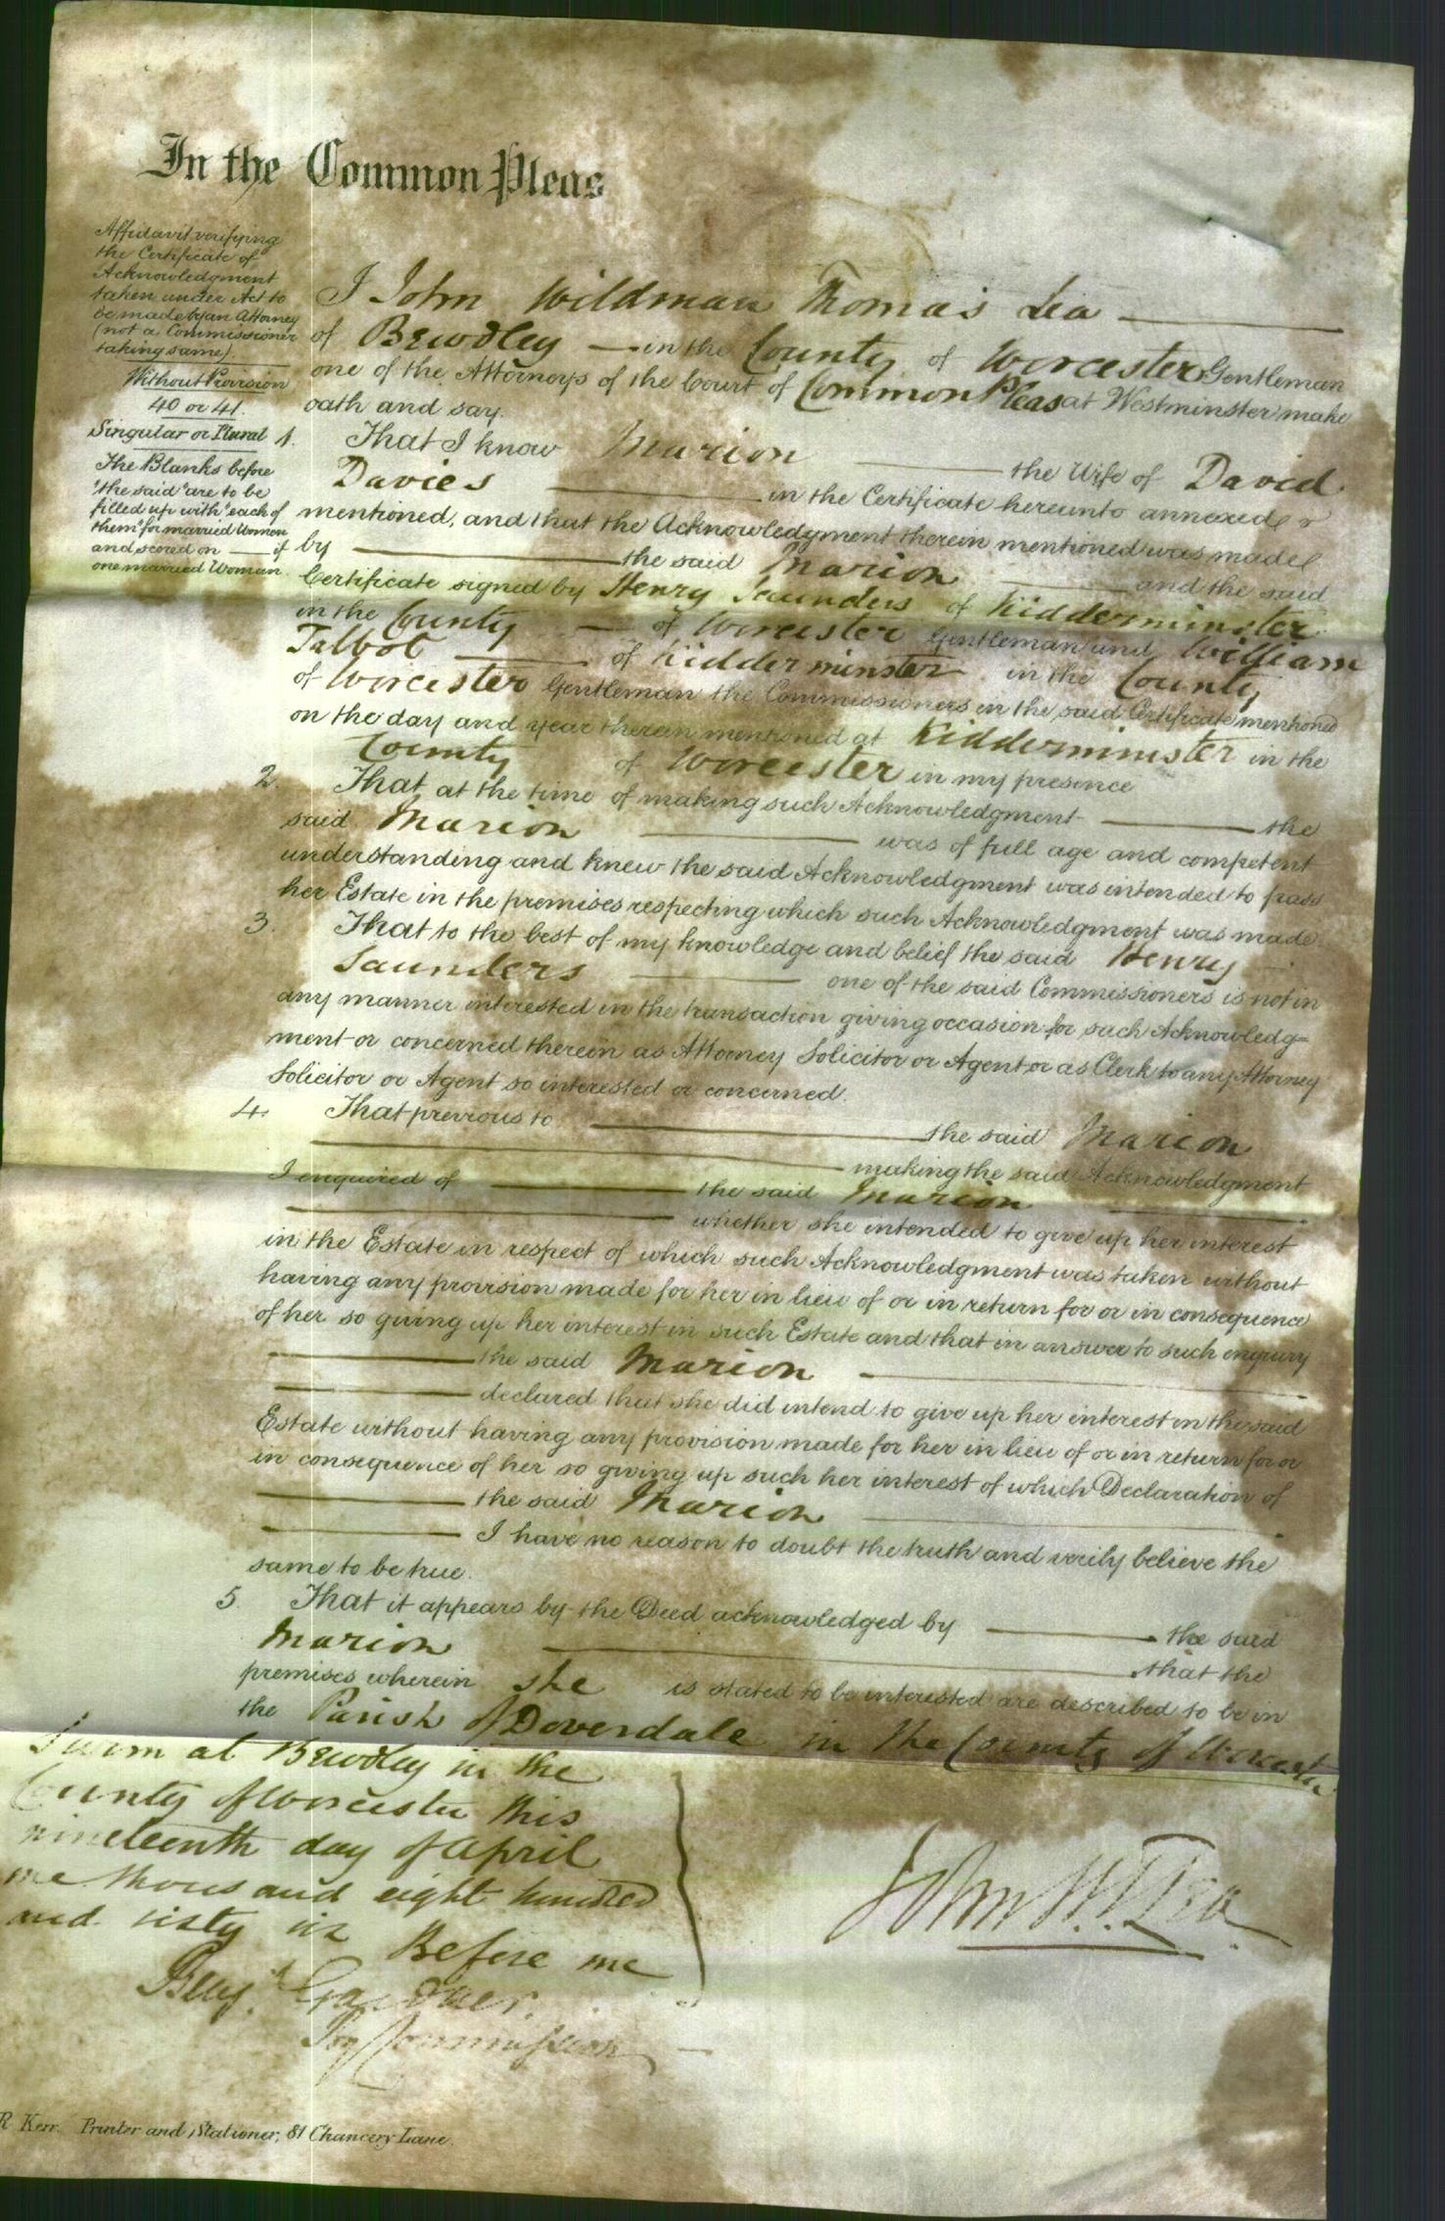 In the Common Pleas
Affidavit verifying
the Certificate of
Acknowledgment
taken under Act to
be made by an Attorney
(not a Commissioner
taking same)
Without Provision
40 or 41.
Singular or Plural
The Blanks before
"the said" are to be
filled up with "each of
them" for married Women
and scored on — if
one married Woman.
I John Wildman Thomas Lea
of Bewdley — in the County of Worcester Gentleman
one of the Attorneys of the Court of Common Pleas at Westminster make
oath and say.
1. That I know Marion the Wife of David
Davies in the Certificate hereunto annexed
mentioned, and that the Acknowledgment therein mentioned was made
by the said Marion and the said
Certificate signed by Henry Saunders of Kidderminster
in the County of Worcester Gentleman and William
Talbot of Kidderminster in the County
of Worcester Gentleman the Commissioners in the said Certificate mentioned
on the day and year therein mentioned at Kidderminster in the
County of Worcester in my presence
2. That at the time of making such Acknowledgment the
said Marion was of full age and competent
understanding and knew the said Acknowledgment was intended to pass
her Estate in the premises respecting which such Acknowledgment was made
3. That to the best of my knowledge and belief the said Henry
Saunders one of the said Commissioners is not in
any manner interested in the transaction giving occasion for such Acknowledg=
ment or concerned therein as Attorney Solicitor or Agent or as Clerk to any Attorney
Solicitor or Agent so interested or concerned.
4. That previous to the said Marion
making the said Acknowledgment
I enquired of the said Marion
whether she intended to give up her interest
in the Estate in respect of which such Acknowledgment was taken without
having any provision made for her in lieu of or in return for or in consequence
of her so giving up her interest in such Estate and that in answer to such enquiry
the said Marion
declared that she did intend to give up her interest in the said
Estate without having any provision made for her in lieu of or in return for or
in consequence of her so giving up such her interest of which Declaration of
the said Marion
I have no reason to doubt the truth and verily believe the
same to be true.
5. That it appears by the Deed acknowledged by the said
Marion that the
premises wherein she is stated to be interested are described to be in
the Parish of Doverdale in the County of Worcester
Sworn at Bewdley in the
County of Worcester this
nineteenth day of April
one thousand eight hundred
and sixty six Before me
Benj.n Gardner.
By Commission
John W. T. Lea
R Kerr. Printer and Stationer, 81 Chancery Lane.